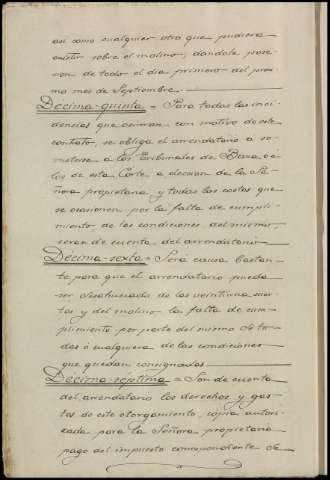 así como cualquier otro que pudiera
existir sobre el molino, dandole pose-
sion de todo el dia primero del proxi-
mo mes de Septiembre.
Décima-quinta = Para todas las inci-
dencias que ocurran con motivo de este
contrato, se obliga el arrendatario á so-
meterse a los Tribunales de Baza, o á
los de esta Corte a eleccion de la Se-
ñora propietaria y todas las costas que
se ocasionen por la falta de cumpli-
miento de las condiciones del mismo,
seran de cuenta del arrendatario
Décima-sexta = Será causa bastan-
te para que el arrendatario pueda
ser desahuciado de las veintiuna suer-
tes y del molino la falta de cum-
plimiento por parte del mismo de to-
das ó cualquiera de las condiciones
que quedan consignadas
Décima séptima = Son de cuenta
del arrendatario los derechos y gas-
tos de este otorgamiento, copia autori-
zada para la Señora propietaria
pago del impuesto correspondiente de